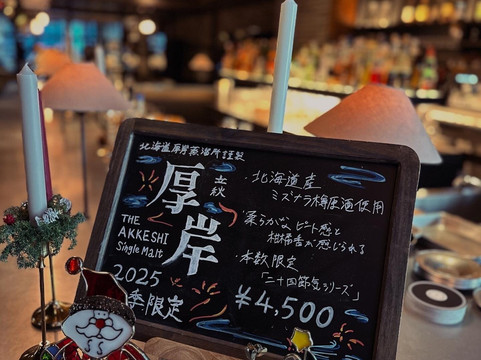 北海道厚岸蒸溜所謹製
厚岸
立秋
THE
AKKESHI
Single Malt
2025
季限定
・北海道産
ミズナラ樽原酒使用
・柔らかなピート感と
柑橘香が感じられる
・本数限定
「二十四節気シリーズ」
¥4,500